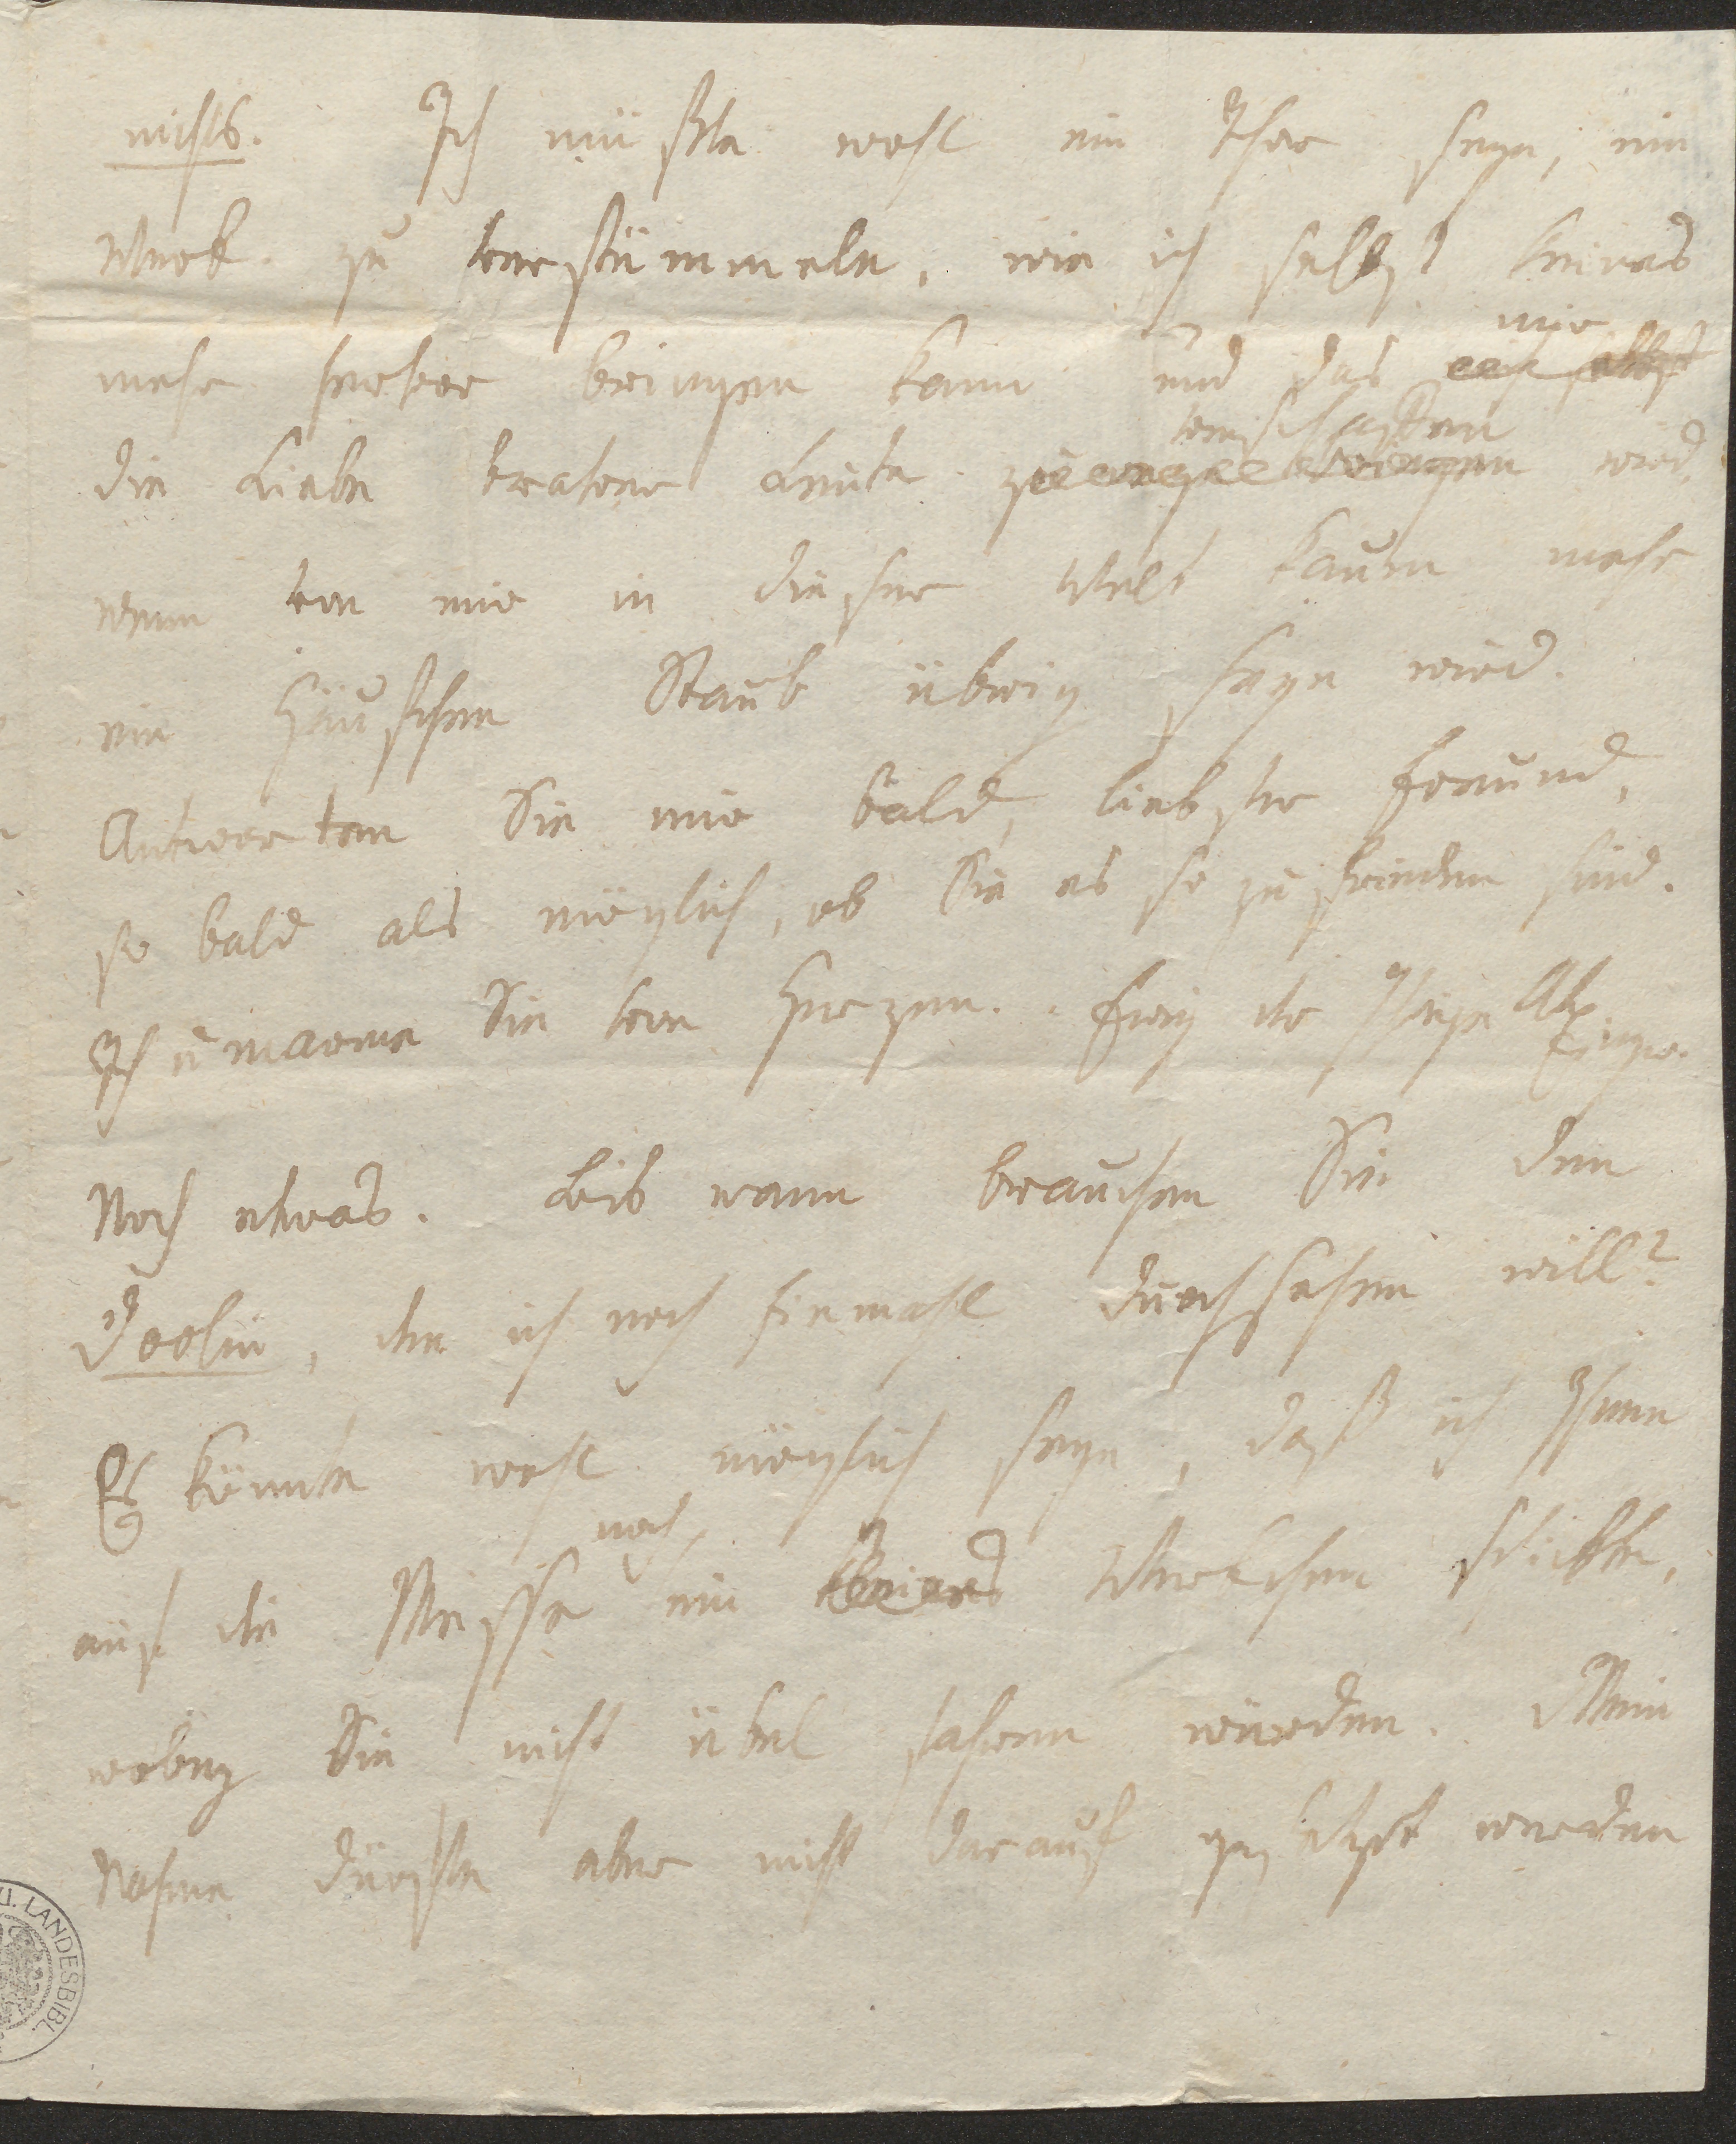 nichts. Ich müßte wohl ein Thor seyn, ein
Werk zu verstümmeln, wie ich selbst keines
mehr hervor bringen kann und das mir
die Liebe braver Leute verschaffen wird,
wenn von mir in dieser Welt kaum mehr
ein Häufchen Staub übrig seyn wird.
Antworten Sie mir bald, liebster Freund,
so bald als möglich, ob Sie es so zu frieden sind.
Ich umarme Sie von Herzen. Ewig der Ihrige Alxinger.
Noch etwas. Bis wann brauchen Sie den
Doolin, den ich noch Einmahl durchsehen will?
Es könnte wohl möglich seyn, daß ich Ihnen
auf die Messe noch ein kleines Werkchen schickte,
wobey Sie nicht übel fahren würden. Mein
Nahme dürfte aber nicht darauf gesetzt werden
U. LANDESBIBL.